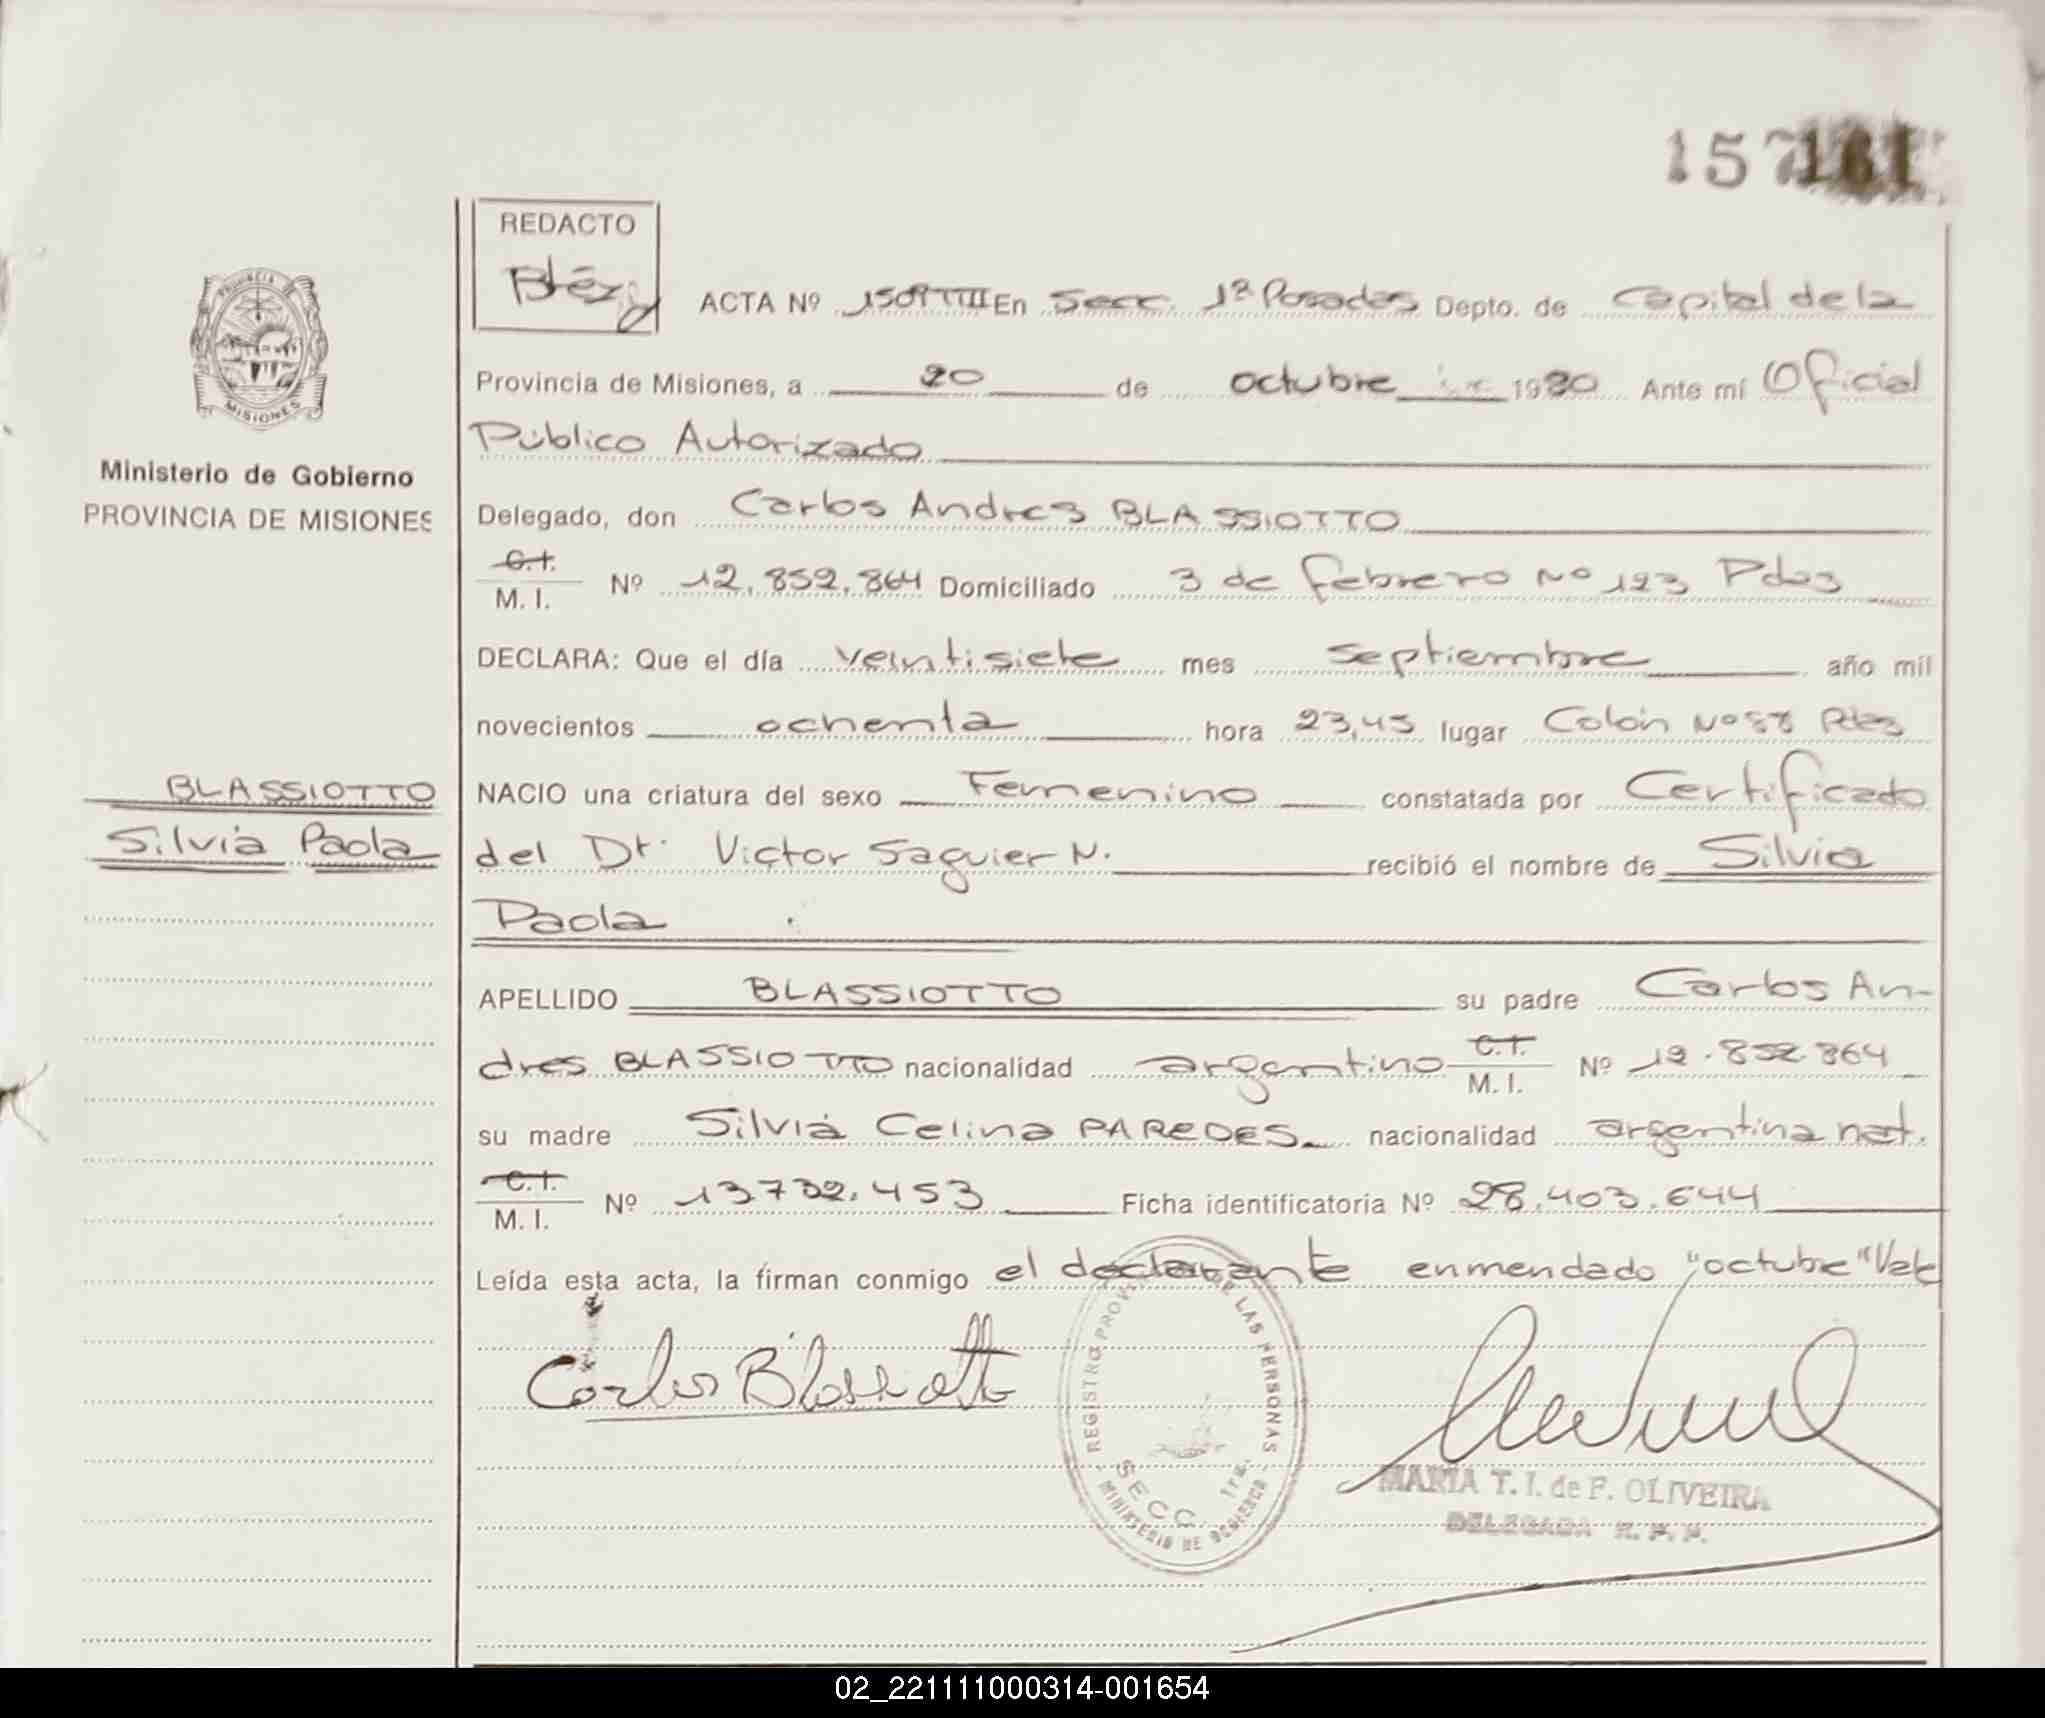 157
161
REDACTO
ACTA Nº 1509 TVIII En Secc. 1ª Posadas Depto. de Capital de la
Provincia de Misiones, a 20 de octubre 1980 Ante mí Oficial
Público Autorizado
Delegado, don Carlos Andres BLASSIOTTO
C.I. / M.I. Nº 12.852.864 Domiciliado 3 de Febrero Nº 123 Pdas
DECLARA: Que el día veintisiete mes septiembre año mil
novecientos ochenta hora 23,45 lugar Colón Nº 58 Pdas
NACIO una criatura del sexo Femenino constatada por Certificado
del Dr. Victor Saguier N. recibió el nombre de Silvia
Paola
APELLIDO BLASSIOTTO su padre Carlos An-
dres BLASSIOTTO nacionalidad argentino C.I. / M.I. Nº 12.852.864
su madre Silvia Celina PAREDES nacionalidad argentina nat.
C.I. / M.I. Nº 13.732.453 Ficha identificatoria Nº 28.403.644
Leída esta acta, la firman conmigo el declarante enmendado "octubre" Vale
Carlos Blassiotto
REGISTRO PROVINCIAL DE LAS PERSONAS
SECC. 1ra.
MINISTERIO DE GOBIERNO
MARIA T. I. de F. OLIVEIRA
DELEGADA R. P. P.
PROVINCIA DE
MISIONES
Ministerio de Gobierno
PROVINCIA DE MISIONES
BLASSIOTTO
Silvia Paola
02_221111000314-001654